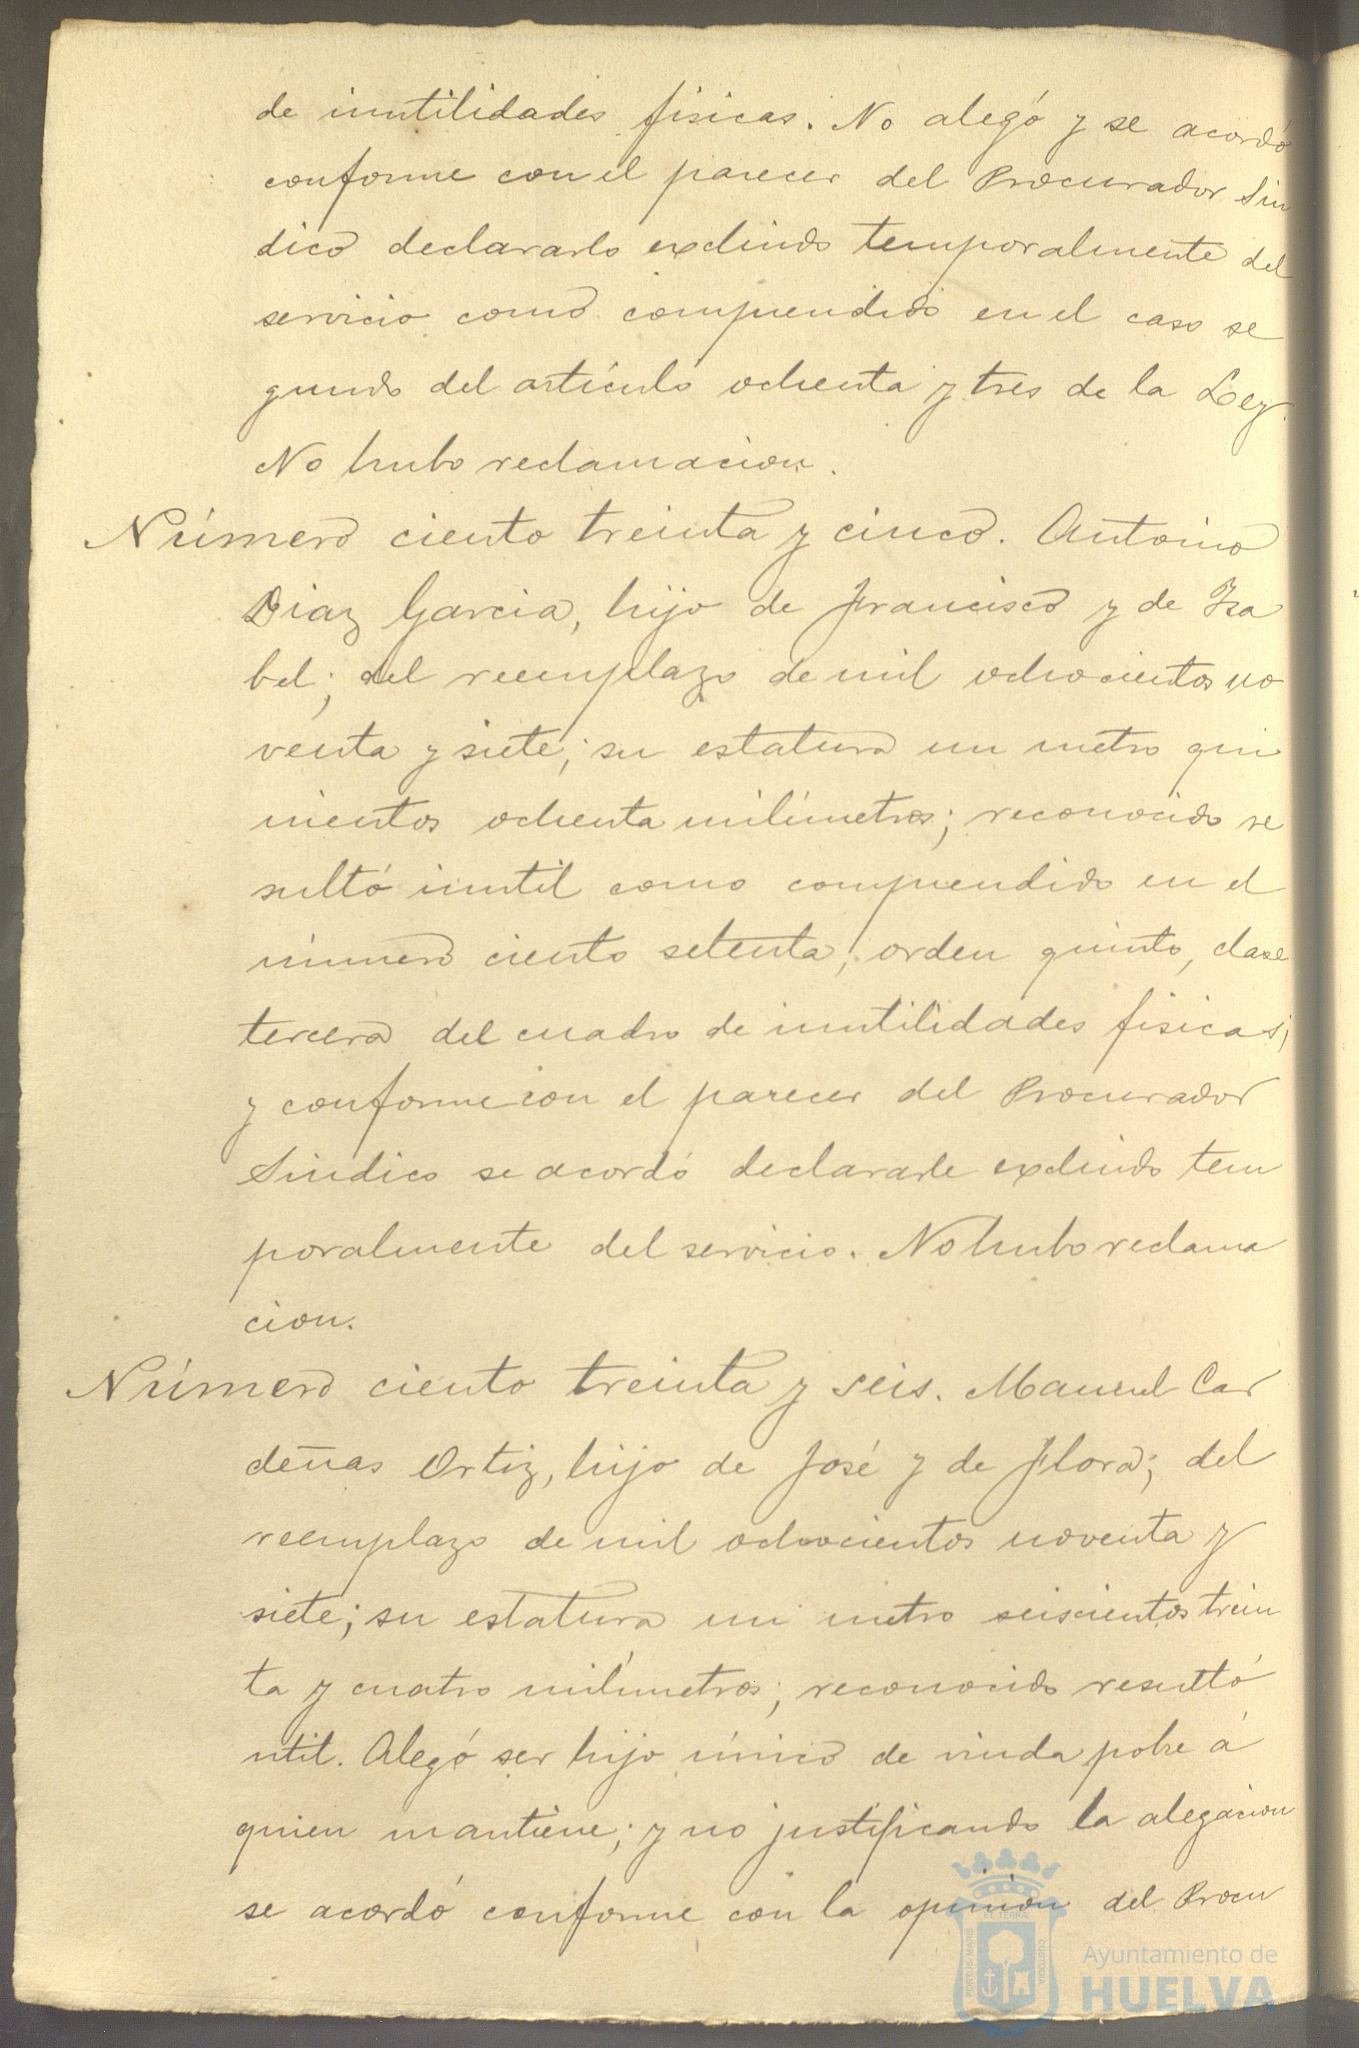 de inutilidades fisicas. No alegó y se acordó
conforme con el parecer del Procurador Sin
dico declararlo excluido temporalmente del
servicio como comprendido en el caso se
gundo del artículo ochenta y tres de la Ley.
No hubo reclamacion.
Número ciento treinta y cinco. Antonio
Diaz Garcia, hijo de Francisco y de Isa
bel; del reemplazo de mil ochocientos no
venta y siete; su estatura un metro qui
nientos ochenta milímetros; reconocido re
sultó inutil como comprendido en el
número ciento setenta, orden quinto, clase
tercera del cuadro de inutilidades fisicas;
y conforme con el parecer del Procurador
Sindico se acordó declararle excluido tem
poralmente del servicio. No hubo reclama
cion.
Número ciento treinta y seis. Manuel Car
deñas Ortiz, hijo de José y de Flora; del
reemplazo de mil ochocientos noventa y
siete; su estatura un metro seiscientos trein
ta y cuatro milímetros; reconocido resultó
util. Alegó ser hijo único de viuda pobre á
quien mantiene; y no justificando la alegacion
se acordó conforme con la opinión del Procu
Ayuntamiento de
HUELVA